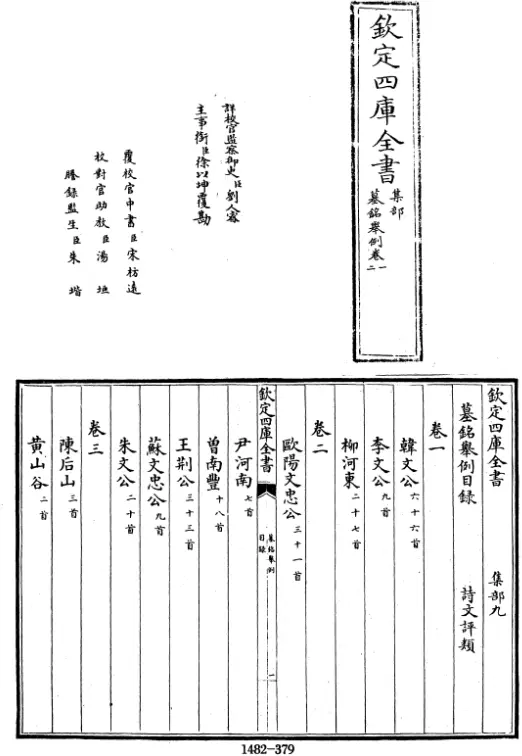 欽定四庫全書
集部
墓銘舉例卷一
二
詳校官監察御史臣劉人睿
主事銜臣徐以坤覆勘
覆校官中書臣宋枋遠
校對官助教臣湯垣
謄錄監生臣朱堦
欽定四庫全書 集部九
墓銘舉例目録 詩文評類
卷一
韓文公六十六首
李文公九首
柳河東二十七首
卷二
歐陽文忠公三十一首
欽定四庫全書
墓銘舉例
目録
一
尹河南七首
曽南豐十八首
王荆公三十三首
蘇文忠公九首
朱文公二十首
卷三
陳后山三首
黄山谷二首
1482-379